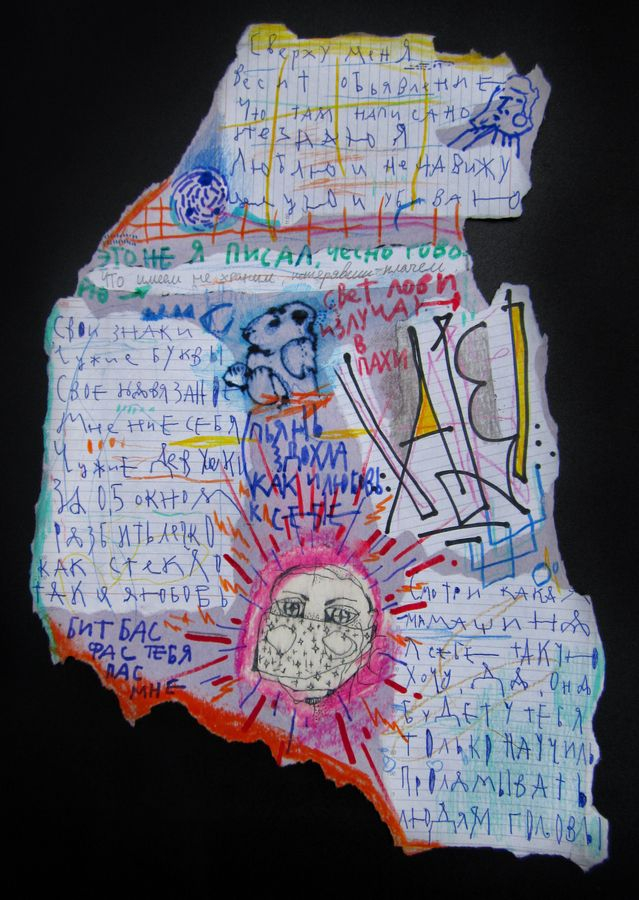 Сверху меня
весит объявление
Что там написано
не знаю я
Люблю и ненавижу
и убиваю
ЭТО НЕ Я ПИСАЛ, ЧЕСНО ГОВО-
РЮ
Что имеем не храним, потерявши-плачем
СВЕТ ЛЮБИ
ИЗЛУЧАЙ
В
ПАХИ
Свои знаки
Чужие буквы
Свое навязаное
Мнение себя
Чужие девченки
За 05 окном
разбить легко
как стекло
так и любовь
ПЬЯНЬ
ЗДОХЛА
КАК И ЛЮБОВЬ
К СЕБЕ
БИТ БАС
ФАС ТЕБЯ
ПАС
МНЕ
Смотри какая
машина
Я себе такую
Хочу, да, она
будет у тебя
только научись
Проламывать
людям головы